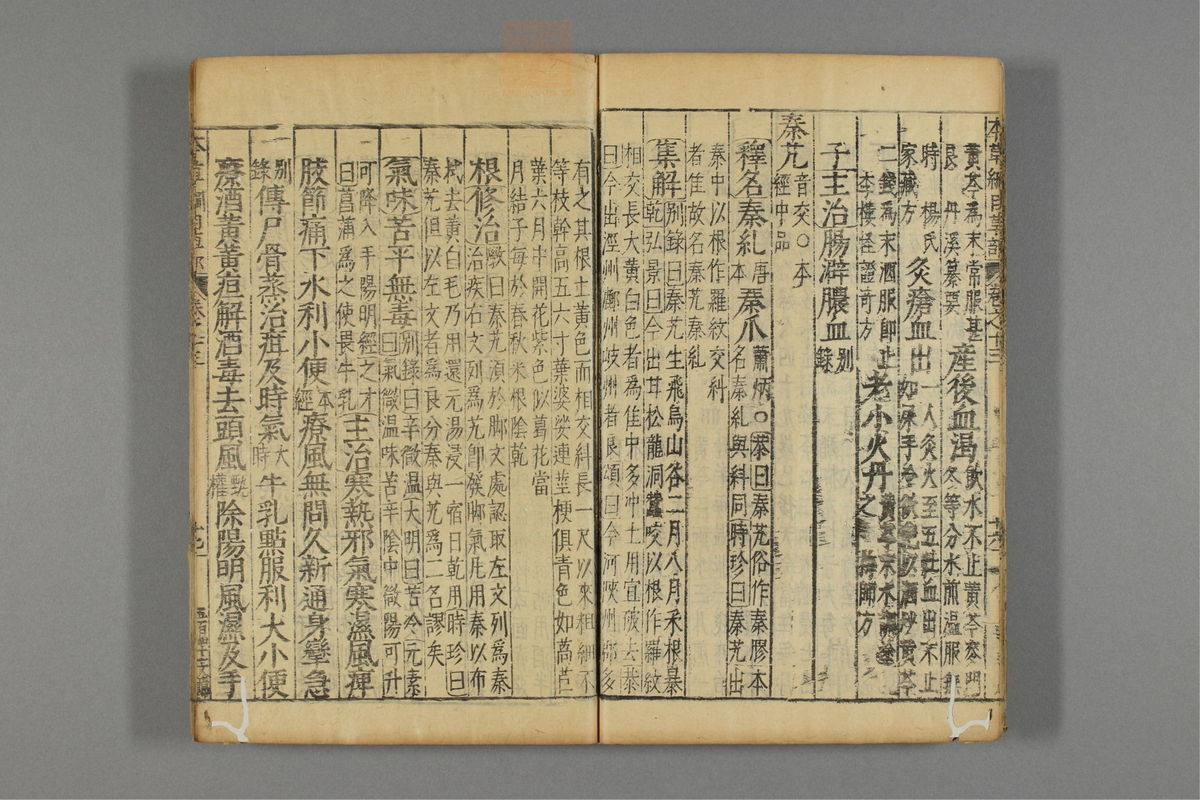 黄芩為末常服甚
良　丹溪纂要　産後血渴飲水不止黄芩麥門
冬等分水煎溫服無
時　楊氏
家藏方　灸瘡血出一人灸火至五壯血出不止
如尿手冷以酒炒黄芩
二錢為末酒服即止
李樓怪證奇方　老小火丹
子主治腸澼膿血别錄
秦艽音交○本
經中品
釋名秦糺唐本秦爪蕭炳○恭曰秦艽俗作秦膠本
名秦糺與科同時珍曰秦艽出
秦中以根作羅紋交糾
者佳故名秦艽秦糺
集解别錄曰秦艽生飛烏山谷二月八月采根暴
乾弘景曰今出甘松龍洞蠶陵以根作羅紋
相交長大黄白色者為佳中多沖土用宜破去恭
曰今出涇州鄜州岐州者良頌曰今河陝州郡多
有之其根土黄色而相交糾長一尺以來粗細不
等枝幹高五六寸葉婆娑連莖梗俱青色如萵苣
葉六月中開花紫色似葛花當
月結子每於春秋采根陰乾
根修治斆曰秦艽須於脚文處認取左文列為秦
治疾右文列為艽即發脚氣凡用秦以布
拭去黄白毛乃用還元湯浸一宿日乾用時珍曰
秦艽俱以左文者為良分秦與艽為二名謬矣
氣味苦平無毒别錄曰辛微溫大明曰苦冷元素
曰氣微溫味苦辛陰中微陽可升
可降入手陽明經之才
曰菖蒲為之使畏牛乳　主治寒熱邪氣寒濕風痺
肢節痛下水利小便本經療風無問久新通身攣急
别錄傳尸骨蒸治疳及時氣大明牛乳點服利大小便
療酒黄黄疸解酒毒去頭風甄權除陽明風濕及手